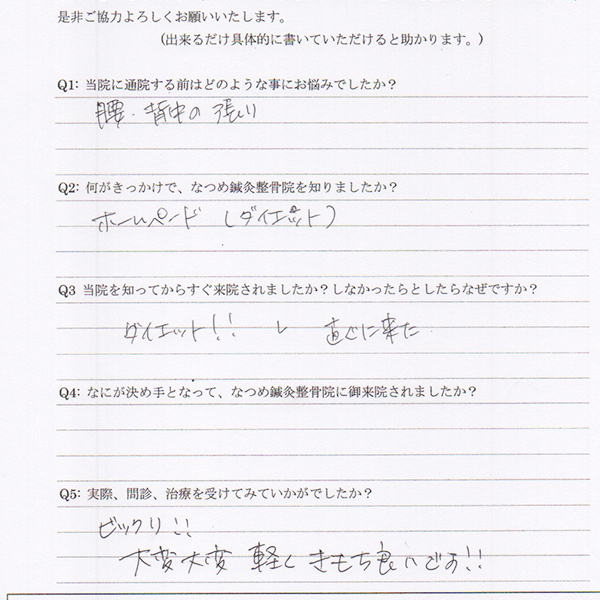 是非ご協力よろしくお願いいたします。
(出来るだけ具体的に書いていただけると助かります。)
Q1: 当院に通院する前はどのような事にお悩みでしたか？
腰・背中の張り
Q2: 何がきっかけで、なつめ鍼灸整骨院を知りましたか？
ホームページ (ダイエット)
Q3 当院を知ってからすぐ来院されましたか？しなかったらとしたらなぜですか？
ダイエット!! し 直ぐに来た
Q4: なにが決め手となって、なつめ鍼灸整骨院に御来院されましたか？
Q5: 実際、問診、治療を受けてみていかがでしたか？
ビックリ!!
大変大変 軽く きもち良いです!!